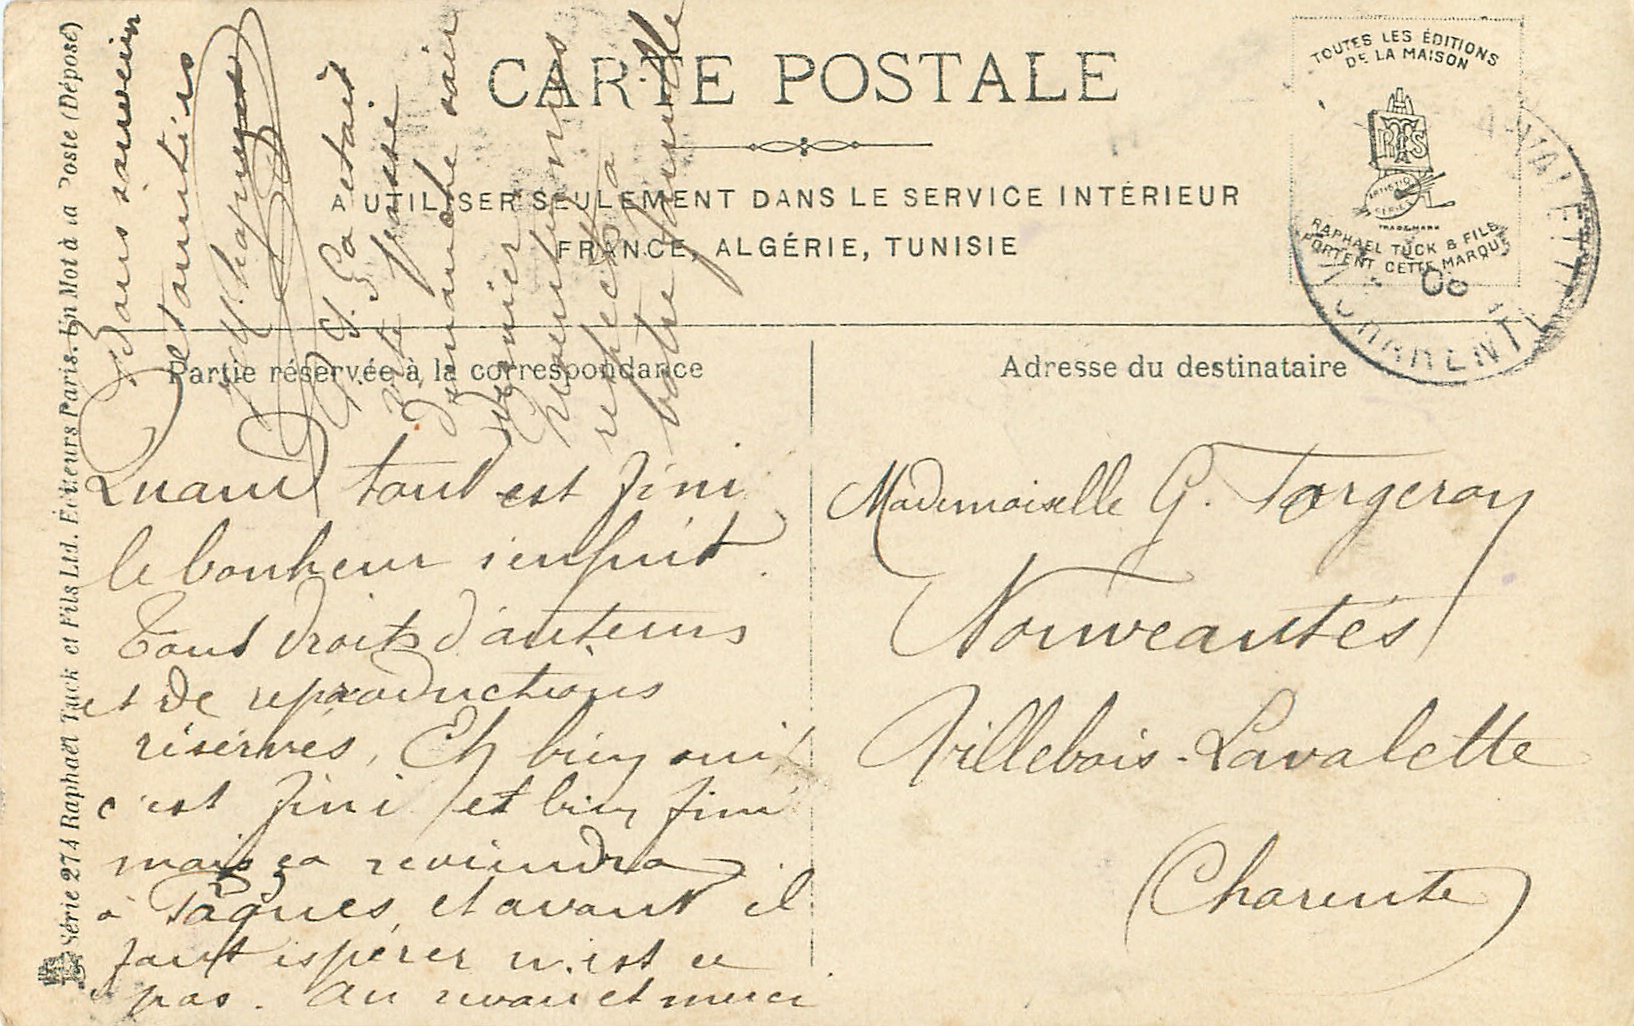 CARTE POSTALE
A UTILISER SEULEMENT DANS LE SERVICE INTÉRIEUR
FRANCE, ALGÉRIE, TUNISIE
TOUTES LES ÉDITIONS
DE LA MAISON
RAPHAEL TUCK & FILS
PORTENT CETTE MARQUE
TRADEMARK
CHARENTE
08
Partie réservée à la correspondance
Adresse du destinataire
Quand tout est fini
le bonheur s'enfuit.
Tout droits d'auteurs
et de reproductions
réservés. Eh bien oui
c'est fini et bien fini
mais ça reviendra
à Pâques, et avant il
faut espérer n'est ce
pas. Au revoir et merci
Bons souvenirs
et amitiés
P.S. Ça était
vite passé
dimanche soir
dernier
Mes hommages
respects à
votre famille
Mademoiselle G. Forgeron
Nouveautés
Villebois-Lavalette
(Charente)
Série 274 Raphael Tuck et Fils Ltd. Éditeurs Paris. Un Mot à la Poste (Déposé)